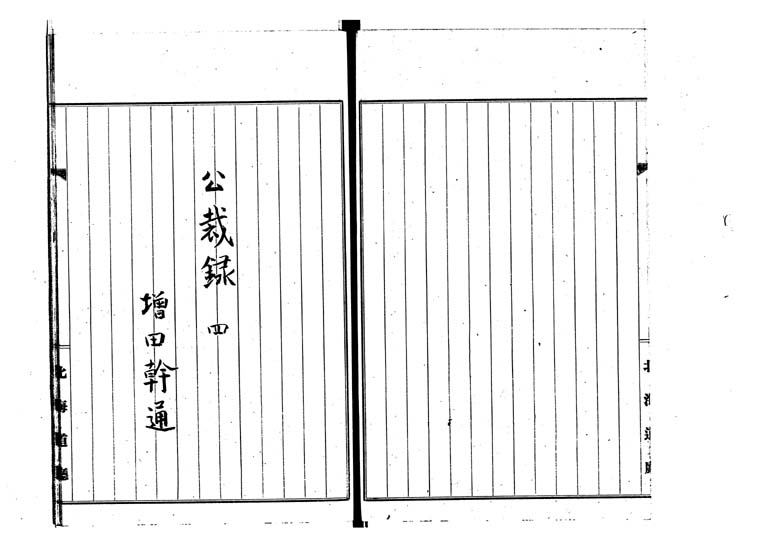 公裁録 四
増田幹通
北海道廳
北海道廳